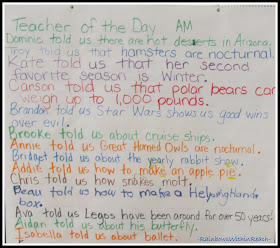 Teacher of the Day AM
Dominic told us there are hot deserts in Arizona.
Troy told us that hamsters are nocturnal.
Kate told us that her second
favorite season is Winter.
Carson told us that polar bears can
weigh up to 1,000 pounds.
Brandon told us Star Wars shows us good wins
over evil.
Brooke told us about cruise ships.
Annie told us Great Horned Owls are nocturnal.
Bridget told us about the yearly rabbit show.
Addie told us how to make an apple pie.
Chris told us how snakes molt.
Beau told us how to make a Helping Hand
box.
Ava told us Legos have been around for over 50 years.
Aidan told us about his butterfly.
Isabella told us about ballet.
RainbowsWithinReach